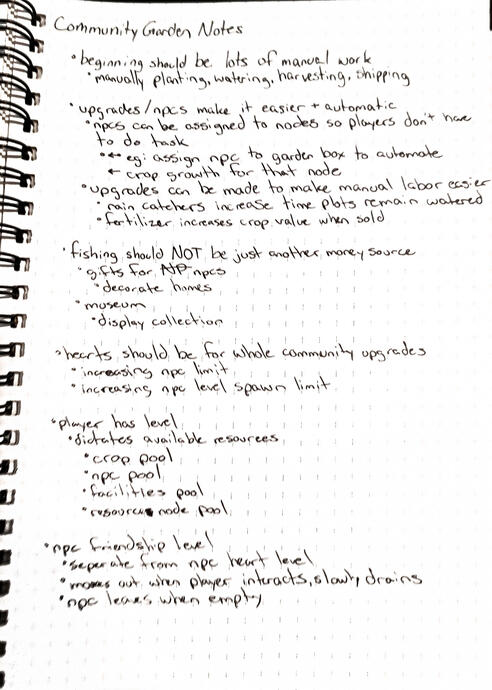 Community Garden Notes
• beginning should be lots of manual work
• manually planting, watering, harvesting, shipping
• upgrades/npcs make it easier + automatic
• npcs can be assigned to nodes so players don't have
to do task
• ← eg: assign npc to garden box to automate
← crop growth for that node
• upgrades can be made to make manual labor easier
• rain catchers increase time plots remain watered
• fertilizer increases crop value when sold
• fishing should NOT be just another money source
• gifts for npcs
• decorate homes
• museum
• display collection
• hearts should be for whole community upgrades
• increasing npc limit
• increasing npc level spawn limit
• player has level
• dictates available resources
• crop pool
• npc pool
• facilities pool
• resource node pool
• npc friendship level
• seperate from npc heart level
• out when player interacts, slowly drains
• npc leaves when empty